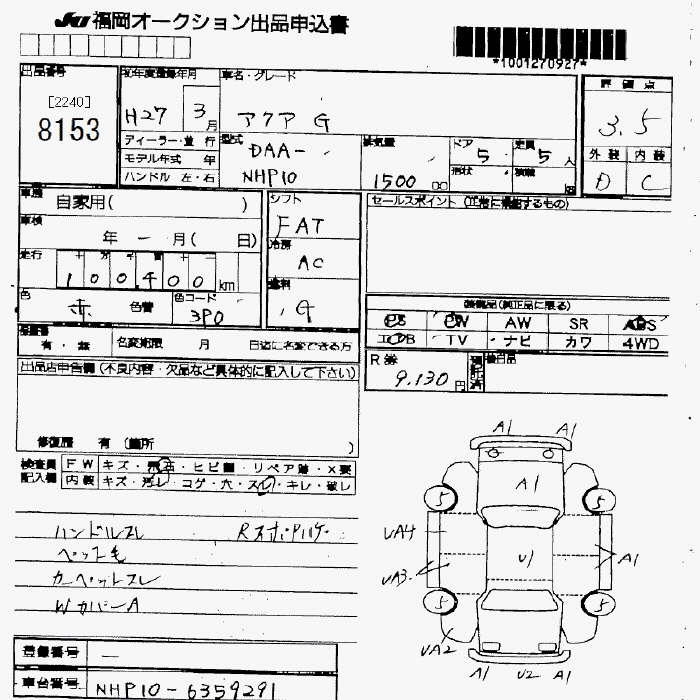 JU 福岡オークション出品申込書
*1001270927*
出品番号
[2240]
8153
初年度登録年月
H27 3月
車名・グレード
アクア G
評価点
3.5
外装 内装
D C
ディーラー・並行
モデル年式 年
ハンドル 左・右
型式
DAA-
NHP10
排気量
1500 cc
ドア
5
形状
定員
5人
積載
車歴
自家用( )
車検
年 - 月( 日)
走行
100400 km
色
赤 色替
色コード
3P0
シフト
FAT
冷房
AC
燃料
G
セールスポイント (正常に機能するもの)
装備品(純正品に限る)
PS PW AW SR ABS
エアB TV ・ナビ カワ 4WD
R券
9,130円
後日品
有・無
名変期限 月 日迄に名変できる方
出品店申告欄(不良内容・欠品など具体的に記入して下さい)
修復歴 有 (箇所 )
検査員
記入欄
FW キズ・飛石・ヒビ割・リペア跡・×要
内装 キズ・汚レ・コゲ・穴・スレ・キレ・破レ
ハンドルスレ
ペット毛
カーペットスレ
WカバーA
A1 A1
A1
5 5
UA4
U1
A1
UA3
5 5
UA2
A1 U2 A1
登録番号 —
車台番号 NHP10-6359291